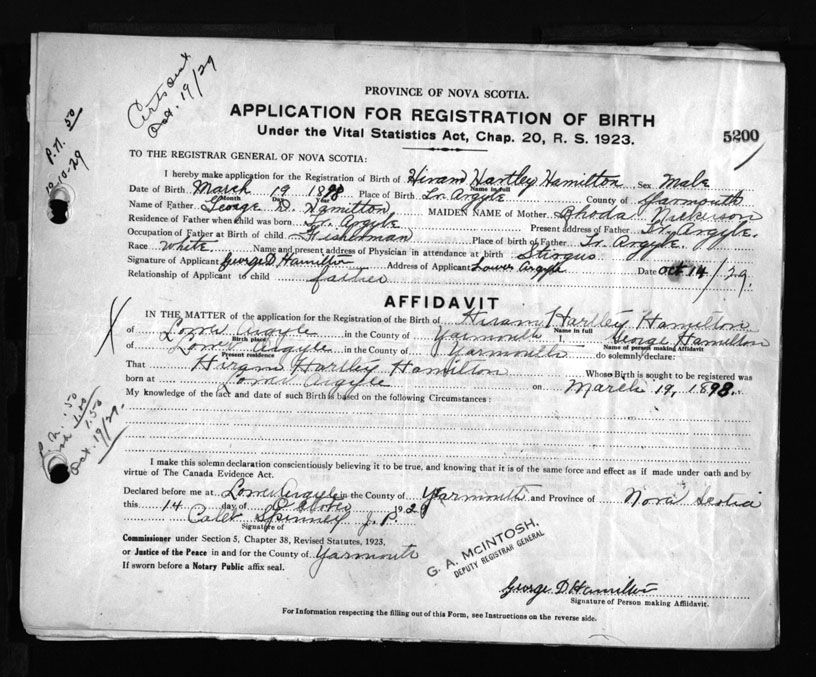 Certs sent
Oct. 19/29
P.N. 50
10-10-29
PROVINCE OF NOVA SCOTIA.
APPLICATION FOR REGISTRATION OF BIRTH
Under the Vital Statistics Act, Chap. 20, R. S. 1923.
5200
TO THE REGISTRAR GENERAL OF NOVA SCOTIA:
I hereby make application for the Registration of Birth of Hiram Hartley Hamilton Sex Male
Name in full
Date of Birth March 19 1898 Place of Birth Lr. Argyle County of Yarmouth
Month Day Year
Name of Father George D. Hamilton MAIDEN NAME of Mother Rhoda Nickerson
Residence of Father when child was born Lr. Argyle Present address of Father Lr. Argyle.
Occupation of Father at Birth of child Fisherman Place of birth of Father Lr. Argyle.
Race White Name and present address of Physician in attendance at birth
Signature of Applicant George D Hamilton Address of Applicant Lower Argyle Date Oct 14/29.
Relationship of Applicant to child father
AFFIDAVIT
IN THE MATTER of the application for the Registration of the Birth of Hiram Hartley Hamilton
Name in full
of Lower Argyle in the County of Yarmouth I, George Hamilton
Birth place Name of person making Affidavit
of Lower Argyle in the County of Yarmouth do solemnly declare:
Present residence
That Hiram Hartley Hamilton Whose Birth is sought to be registered was
born at Lower Argyle on March 19, 1898.
My knowledge of the fact and date of such Birth is based on the following Circumstances:
1.50
Oct. 19/29.
I make this solemn declaration conscientiously believing it to be true, and knowing that it is of the same force and effect as if made under oath and by
virtue of The Canada Evidence Act.
Declared before me at Lower Argyle in the County of Yarmouth and Province of Nova Scotia
this 14 day of October 1929
Caleb Spinney J. P.
Signature of
Commissioner under Section 5, Chapter 38, Revised Statutes, 1923,
or Justice of the Peace in and for the County of Yarmouth
If sworn before a Notary Public affix seal.
G. A. McINTOSH,
DEPUTY REGISTRAR GENERAL
George D Hamilton
Signature of Person making Affidavit.
For Information respecting the filling out of this Form, see Instructions on the reverse side.